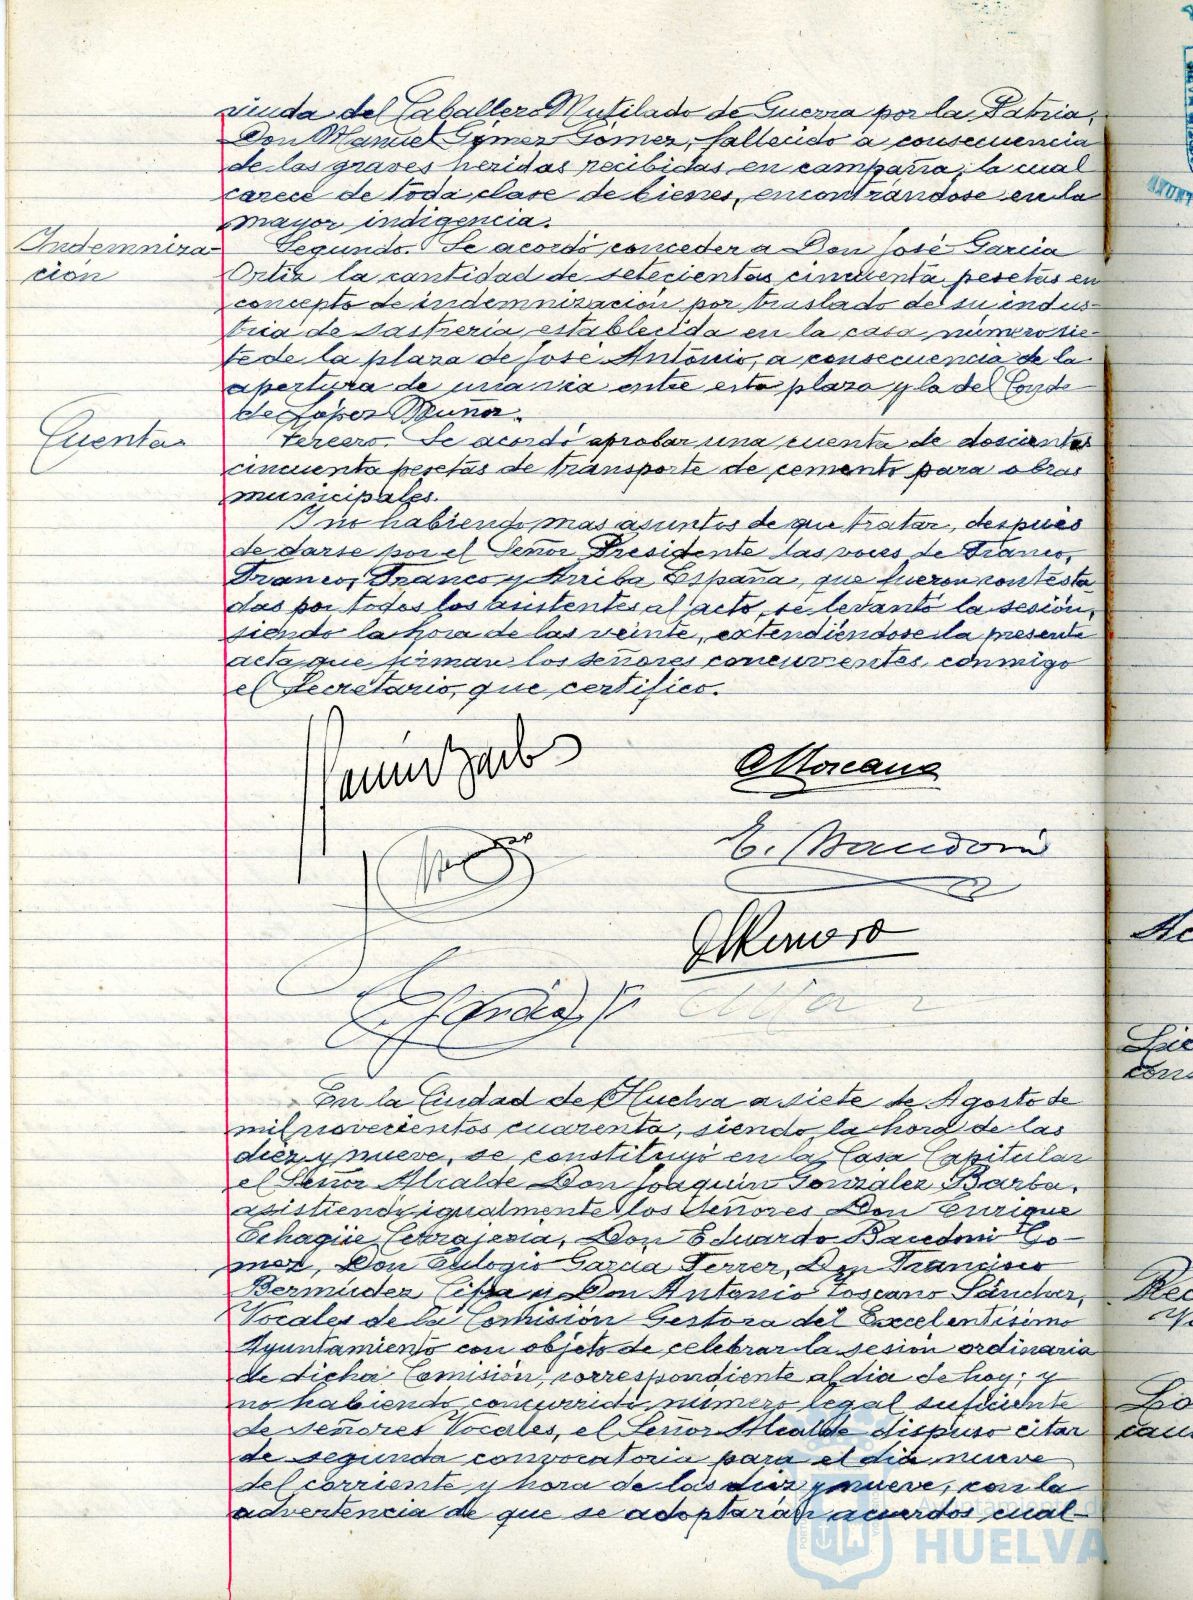 viuda del Caballero Mutilado de Guerra por la Patria,
Don Manuel Gómez Gómez, fallecido a consecuencia
de las graves heridas recibidas en campaña, la cual
carece de toda clase de bienes, encontrándose en la
mayor indigencia.
Indemniza-
ción
Segundo. Se acordó conceder a Don José García
Ortiz la cantidad de setecientas cincuenta pesetas en
concepto de indemnización por traslado de su indus-
tria de sastrería establecida en la casa número sie-
te de la plaza de José Antonio, a consecuencia de la
apertura de una vía entre esta plaza y la del Conde
de López Muñoz.
Cuentas
Tercero. Se acordó aprobar una cuenta de doscientas
cincuenta pesetas de transporte de cemento para obras
municipales.
Y no habiendo mas asuntos de que tratar, despues
de darse por el Señor Presidente las voces de Franco,
Franco, Franco y Arriba España, que fueron contesta-
das por todos los asistentes al acto, se levantó la sesión,
siendo la hora de las veinte, extendiéndose la presente
acta que firman los señores concurrentes, conmigo
el Secretario, que certifico.
A Toscano
E. Bandoni
En la Ciudad de Huelva a siete de Agosto de
mil novecientos cuarenta, siendo la hora de las
diez y nueve, se constituyó en la Casa Capitular
el Señor Alcalde Don Joaquín González Barba,
asistiendo igualmente los Señores Don Enrique
Echagüe Don Eduardo Bandoni Gó-
mez, Don Eulogio García Ferrer, Don Francisco
Bermúdez y Don Antonio Toscano Sánchez,
Vocales de la Comisión Gestora del Excelentísimo
Ayuntamiento con objeto de celebrar la sesión ordinaria
de dicha Comisión, correspondiente al dia de hoy; y
no habiendo concurrido número legal suficiente
de señores Vocales, el Señor Alcalde dispuso citar
de segunda convocatoria para el día nueve
del corriente y hora de las diez y nueve, con la
advertencia de que se adoptarán acuerdos cual-
Ayuntamiento de
HUELVA